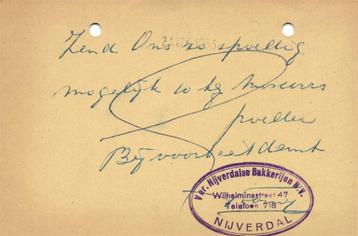 Zend Ons zo spoedig
mogelijk 10 kg
poeder
Bij voorbaat dank
Ver. Nijverdalse Bakkerijen N.V.
Wilhelminastraat 47
Telefoon 718
NIJVERDAL